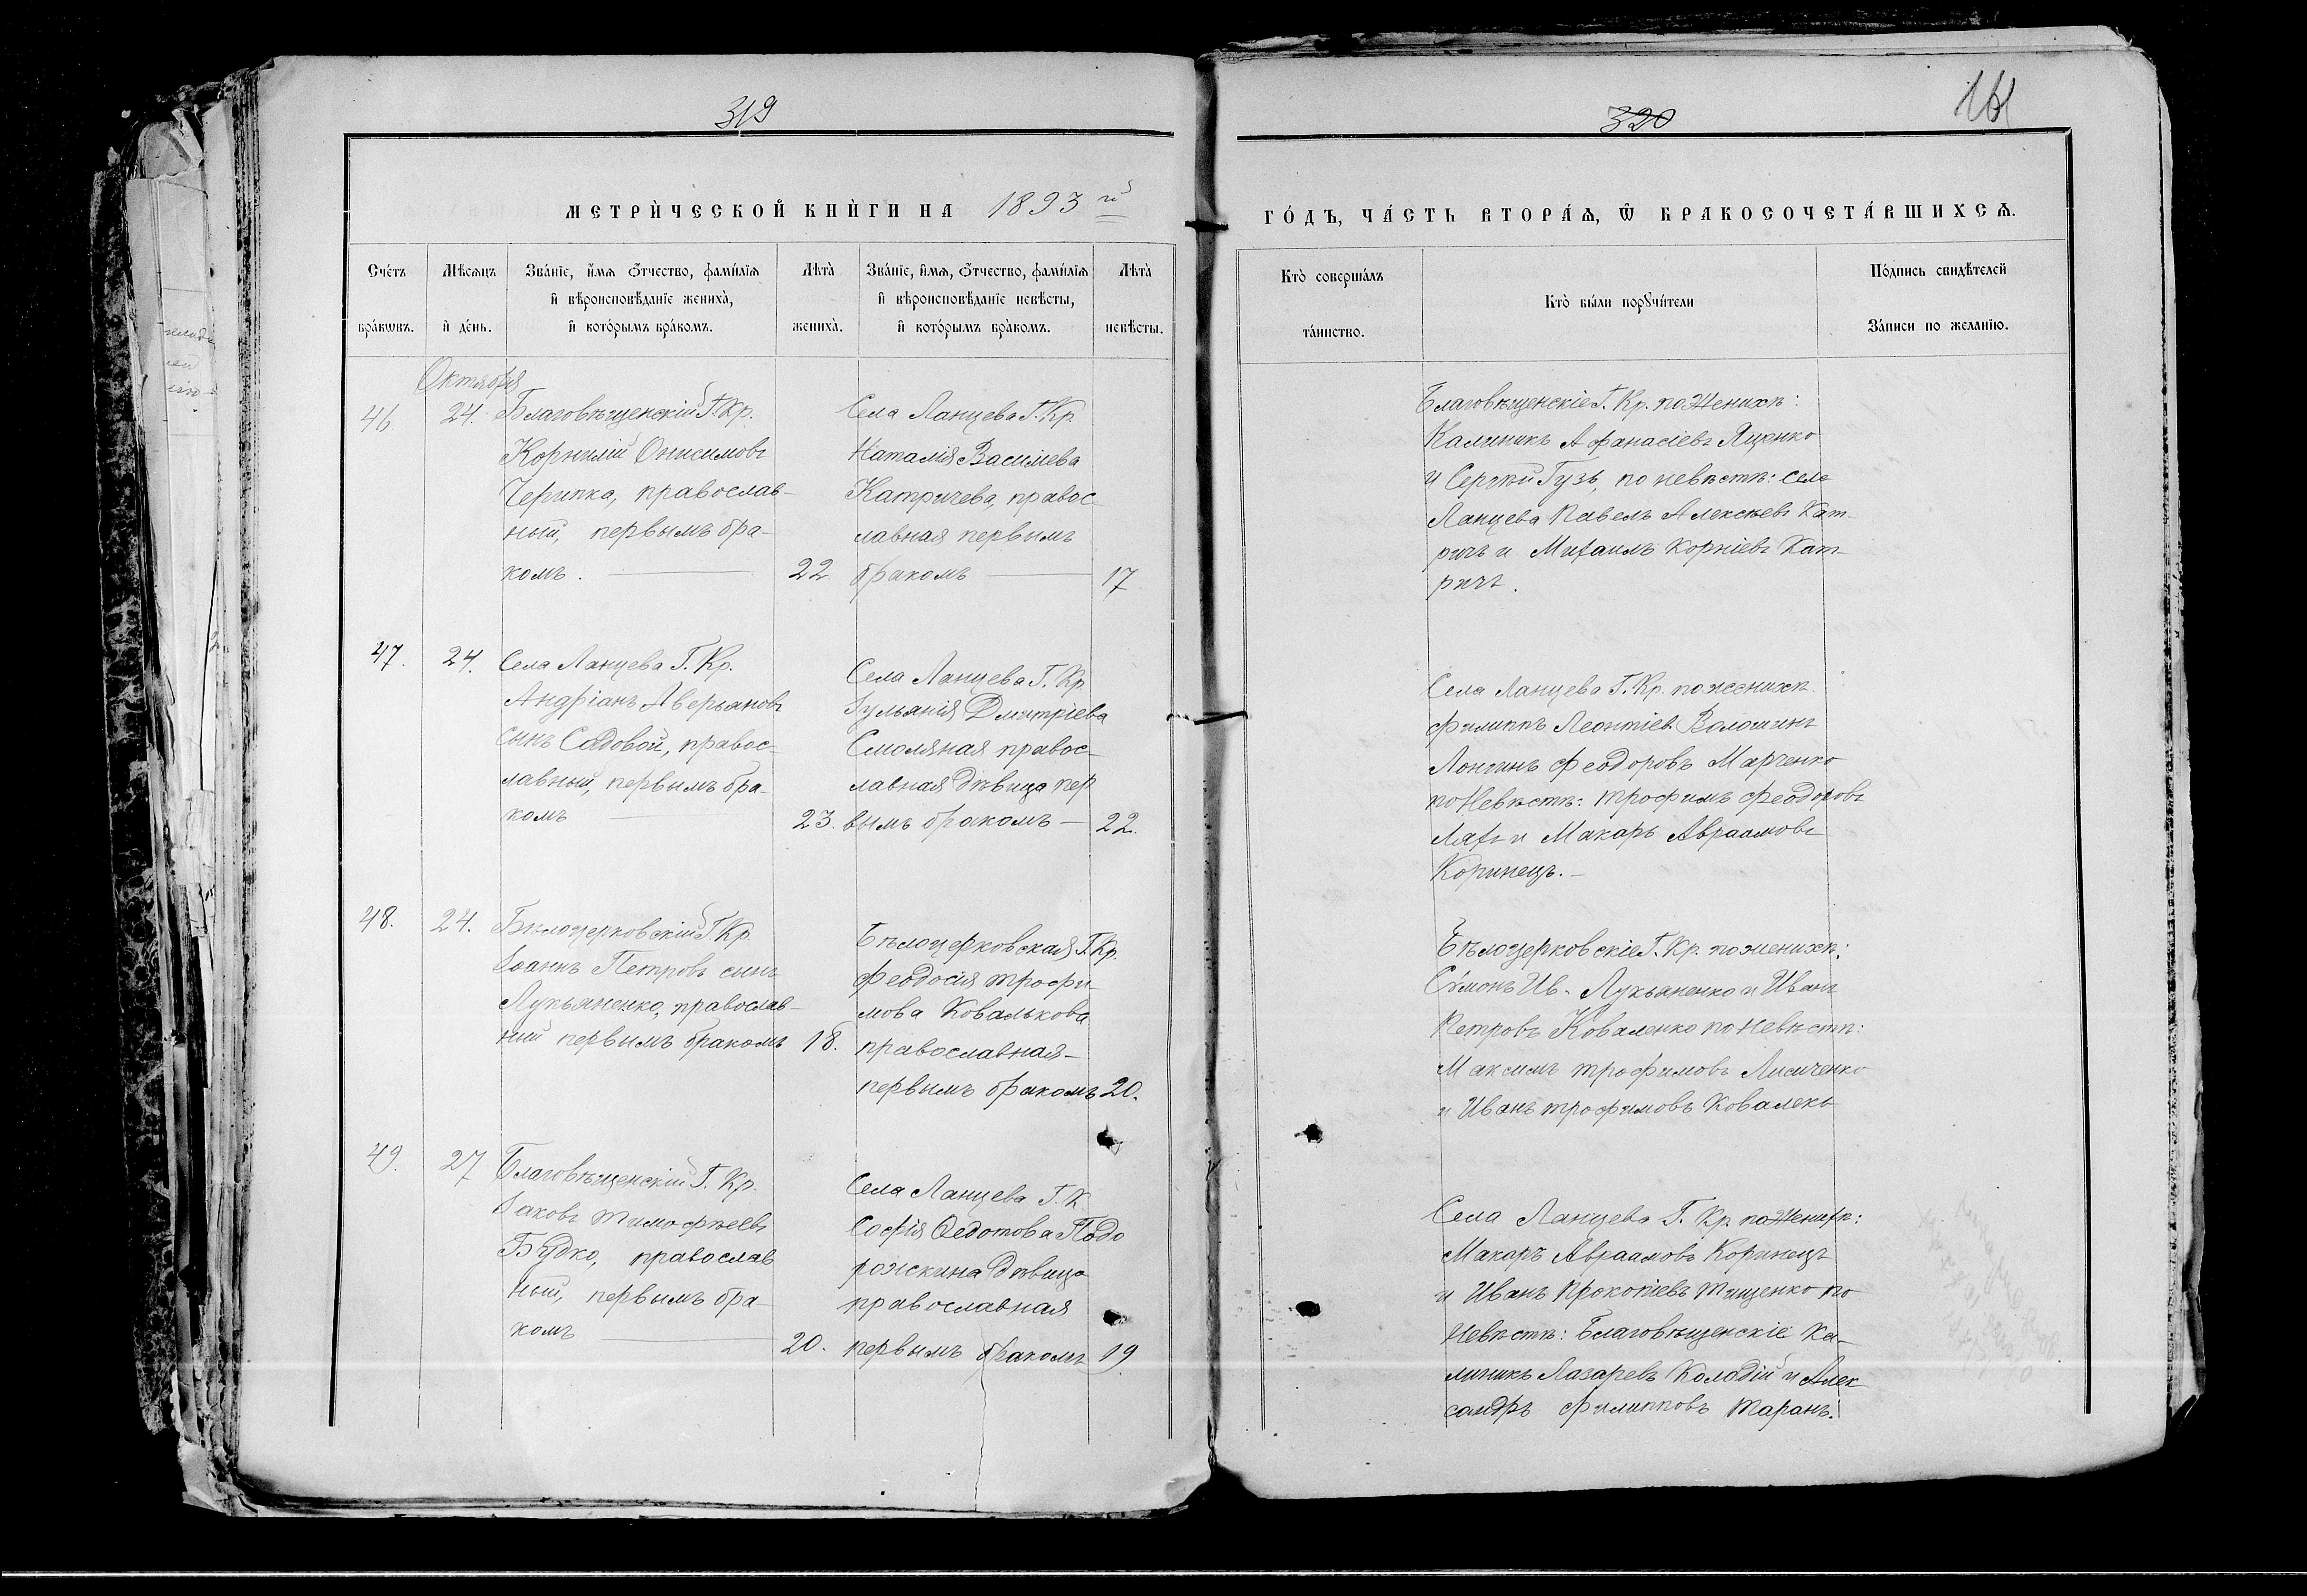 319
МЕТРИ́ЧЕСКОЙ КНИ́ГИ НА 1893 й
Сче́тъ бра́кωвъ.
Мѣ́сяцъ и҆ де́нь.
Зва́нїе, и҆́мя ѻ҆́тчество, фами́лїя
и҆ вѣроисповѣ́данїе жениха̀,
и҆ кото́рымъ бра́комъ.
Лѣ́та̀
жениха̀.
Зва́нїе, и҆́мя, ѻ҆́тчество, фами́лїя
и҆ вѣроисповѣ́данїе невѣ́сты,
и҆ кото́рымъ бра́комъ.
Лѣ́та̀
невѣ́сты.
Октября
46 24. Благовѣщенскій Г. Кр.
Корнилій Онисимовъ
Черипка, православ-
ный, первымъ бра-
комъ. 22
Села Ланцева Г. Кр.
Наталія Василева
Катричева, правос-
лавная первымъ
бракомъ 17
47. 24. Села Ланцева Г. Кр.
Андріанъ Аверьяновъ
сынъ Садовой, правос-
лавный, первымъ бра-
комъ 23.
Села Ланцева Г. Кр
Іульянія Дмитріева
Смоляная правос-
лавная дѣвица пер
вымъ бракомъ — 22.
48. 24. Бѣлоцерковскій Г. Кр
Іоаннъ Петровъ сынъ
Лукьяненко, православ-
ний первымъ бракомъ 18.
Бѣлоцерковская Г. Кр.
Феодосія Трофи-
мова Ковалькова
православная-
первымъ бракомъ 20.
49. 27 Благовѣщенскій Г. Кр.
Іаковъ Тимофѣевъ
Будко, православ
ный, первымъ бра-
комъ 20.
Села Ланцева Г. К
Софія Федотова Подо
рожкина дѣвица
православная
первымъ бракомъ 19
320
161
ГО́ДЪ, ЧА́СТЬ ВТОРА́Ѧ, Ѽ БРАКОСОЧЕТА́ВШИХСѦ.
Кто̀ соверша́лъ
та́инство.
Кто̀ бы́ли порꙋчи́тели
По́дпись свидѣ́телей
За́писи по жела́нїю.
Благовѣщенскіе Г. Кр. по Женихѣ:
Калиникъ Афанасіевъ Яценко
и Сергѣй Гузь, по невѣстѣ: села
Ланцева Павелъ Алексѣевъ Кат-
ричъ и Михаилъ Корніевъ Кат-
ричъ.
Села Ланцева Г. Кр. по женихѣ
Филиппъ Леонтіев. Волошинъ
Лонгинъ Феодоровъ Марченко
по Невѣстѣ: Трофимъ Феодоровъ
Ляхъ и Макаръ Авраамовъ
Коринецъ.-
Бѣлоцерковскіе Г. Кр. по женихѣ:
Сѵмонъ Ив. Лукьяненко и Иванъ
Петровъ Коваленко по Невѣстѣ:
Максимъ Трофимовъ Лисиченко
и Иванъ Трофимовъ Ковалекъ
Села Ланцева Г. Кр по Женихѣ:
Макаръ Авраамовъ Коринецъ
и Иванъ Прокопіевъ Тищенко по
Невѣстѣ: Благовѣщенскіе Ка-
линикъ Лазаревъ Колодій и Алек
сандръ Филипповъ Таранъ.